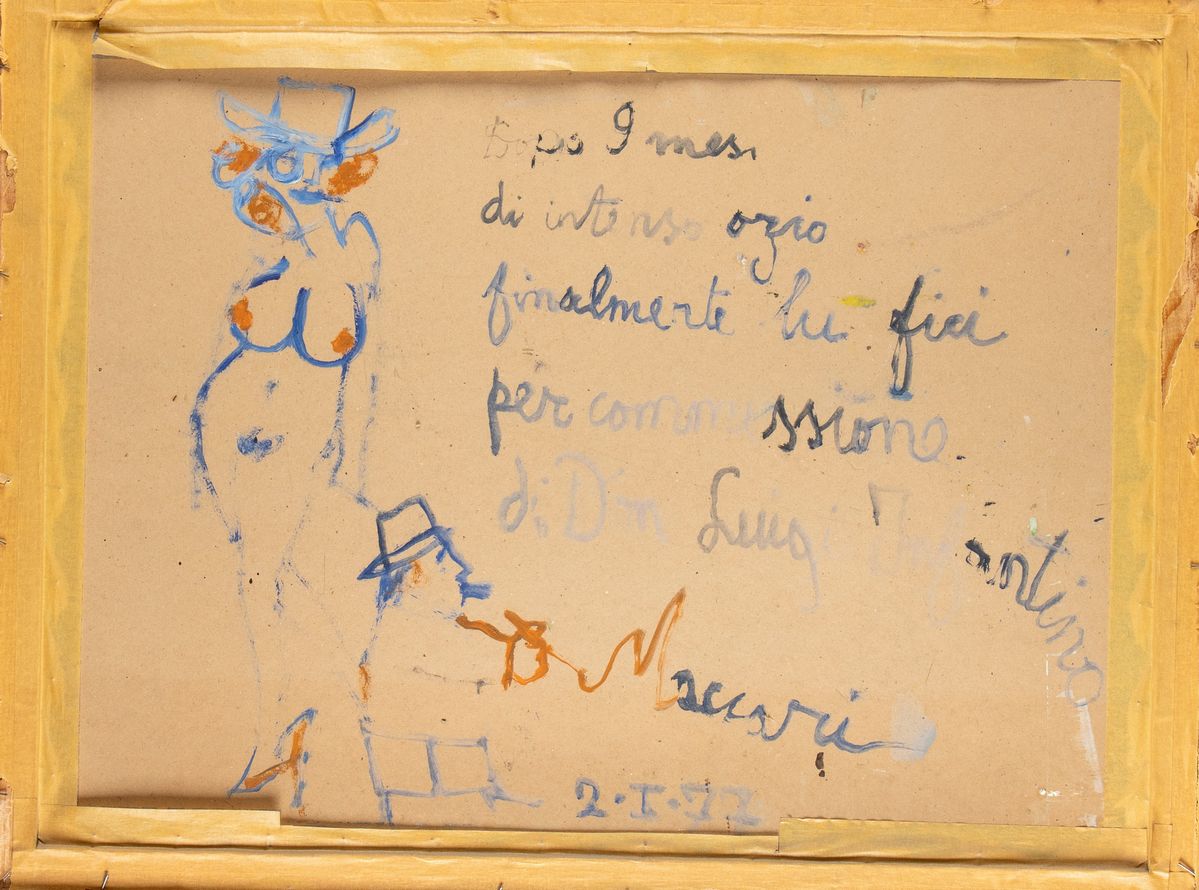 Dopo 9 mesi
di intenso ozio
finalmente lu fici
per commissione
di Don Luigi Infantino
Maccari